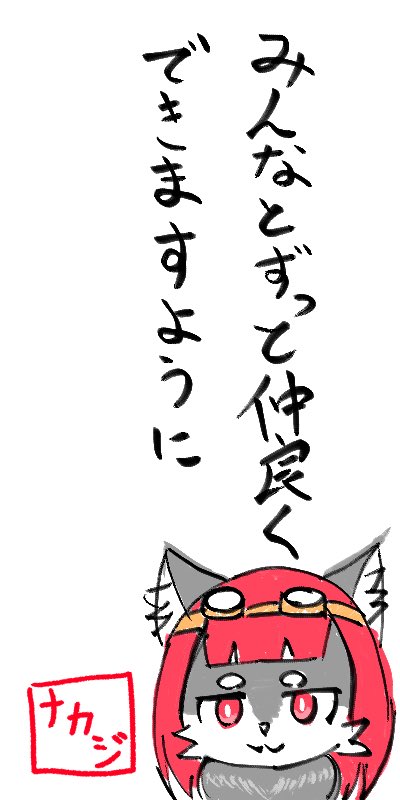 みんなとずっと仲良く
できますように
ナカジ